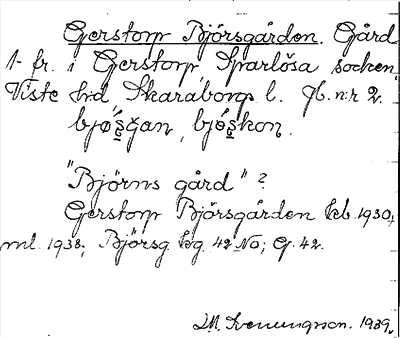 Gerstorp Björsgården. Gård
1 fr. i Gerstorp, Sparlösa socken,
Viste hd, Skaraborgs l. Jb. n:r 2.
bjǿʂgan, bjǿʂkon.
"Björns gård"?
Gerstorp Björsgården kb. 1930;
ml. 1938; Björsg. kg. 42 No; G. 42.
1939.